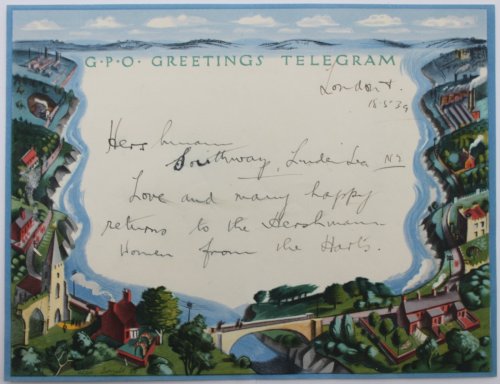 G·P·O· GREETINGS TELEGRAM
London
18.5.39
Hershmann
Southway, Linden Lea N2
Love and many happy
returns to the Hershmann
Women from the Harts.